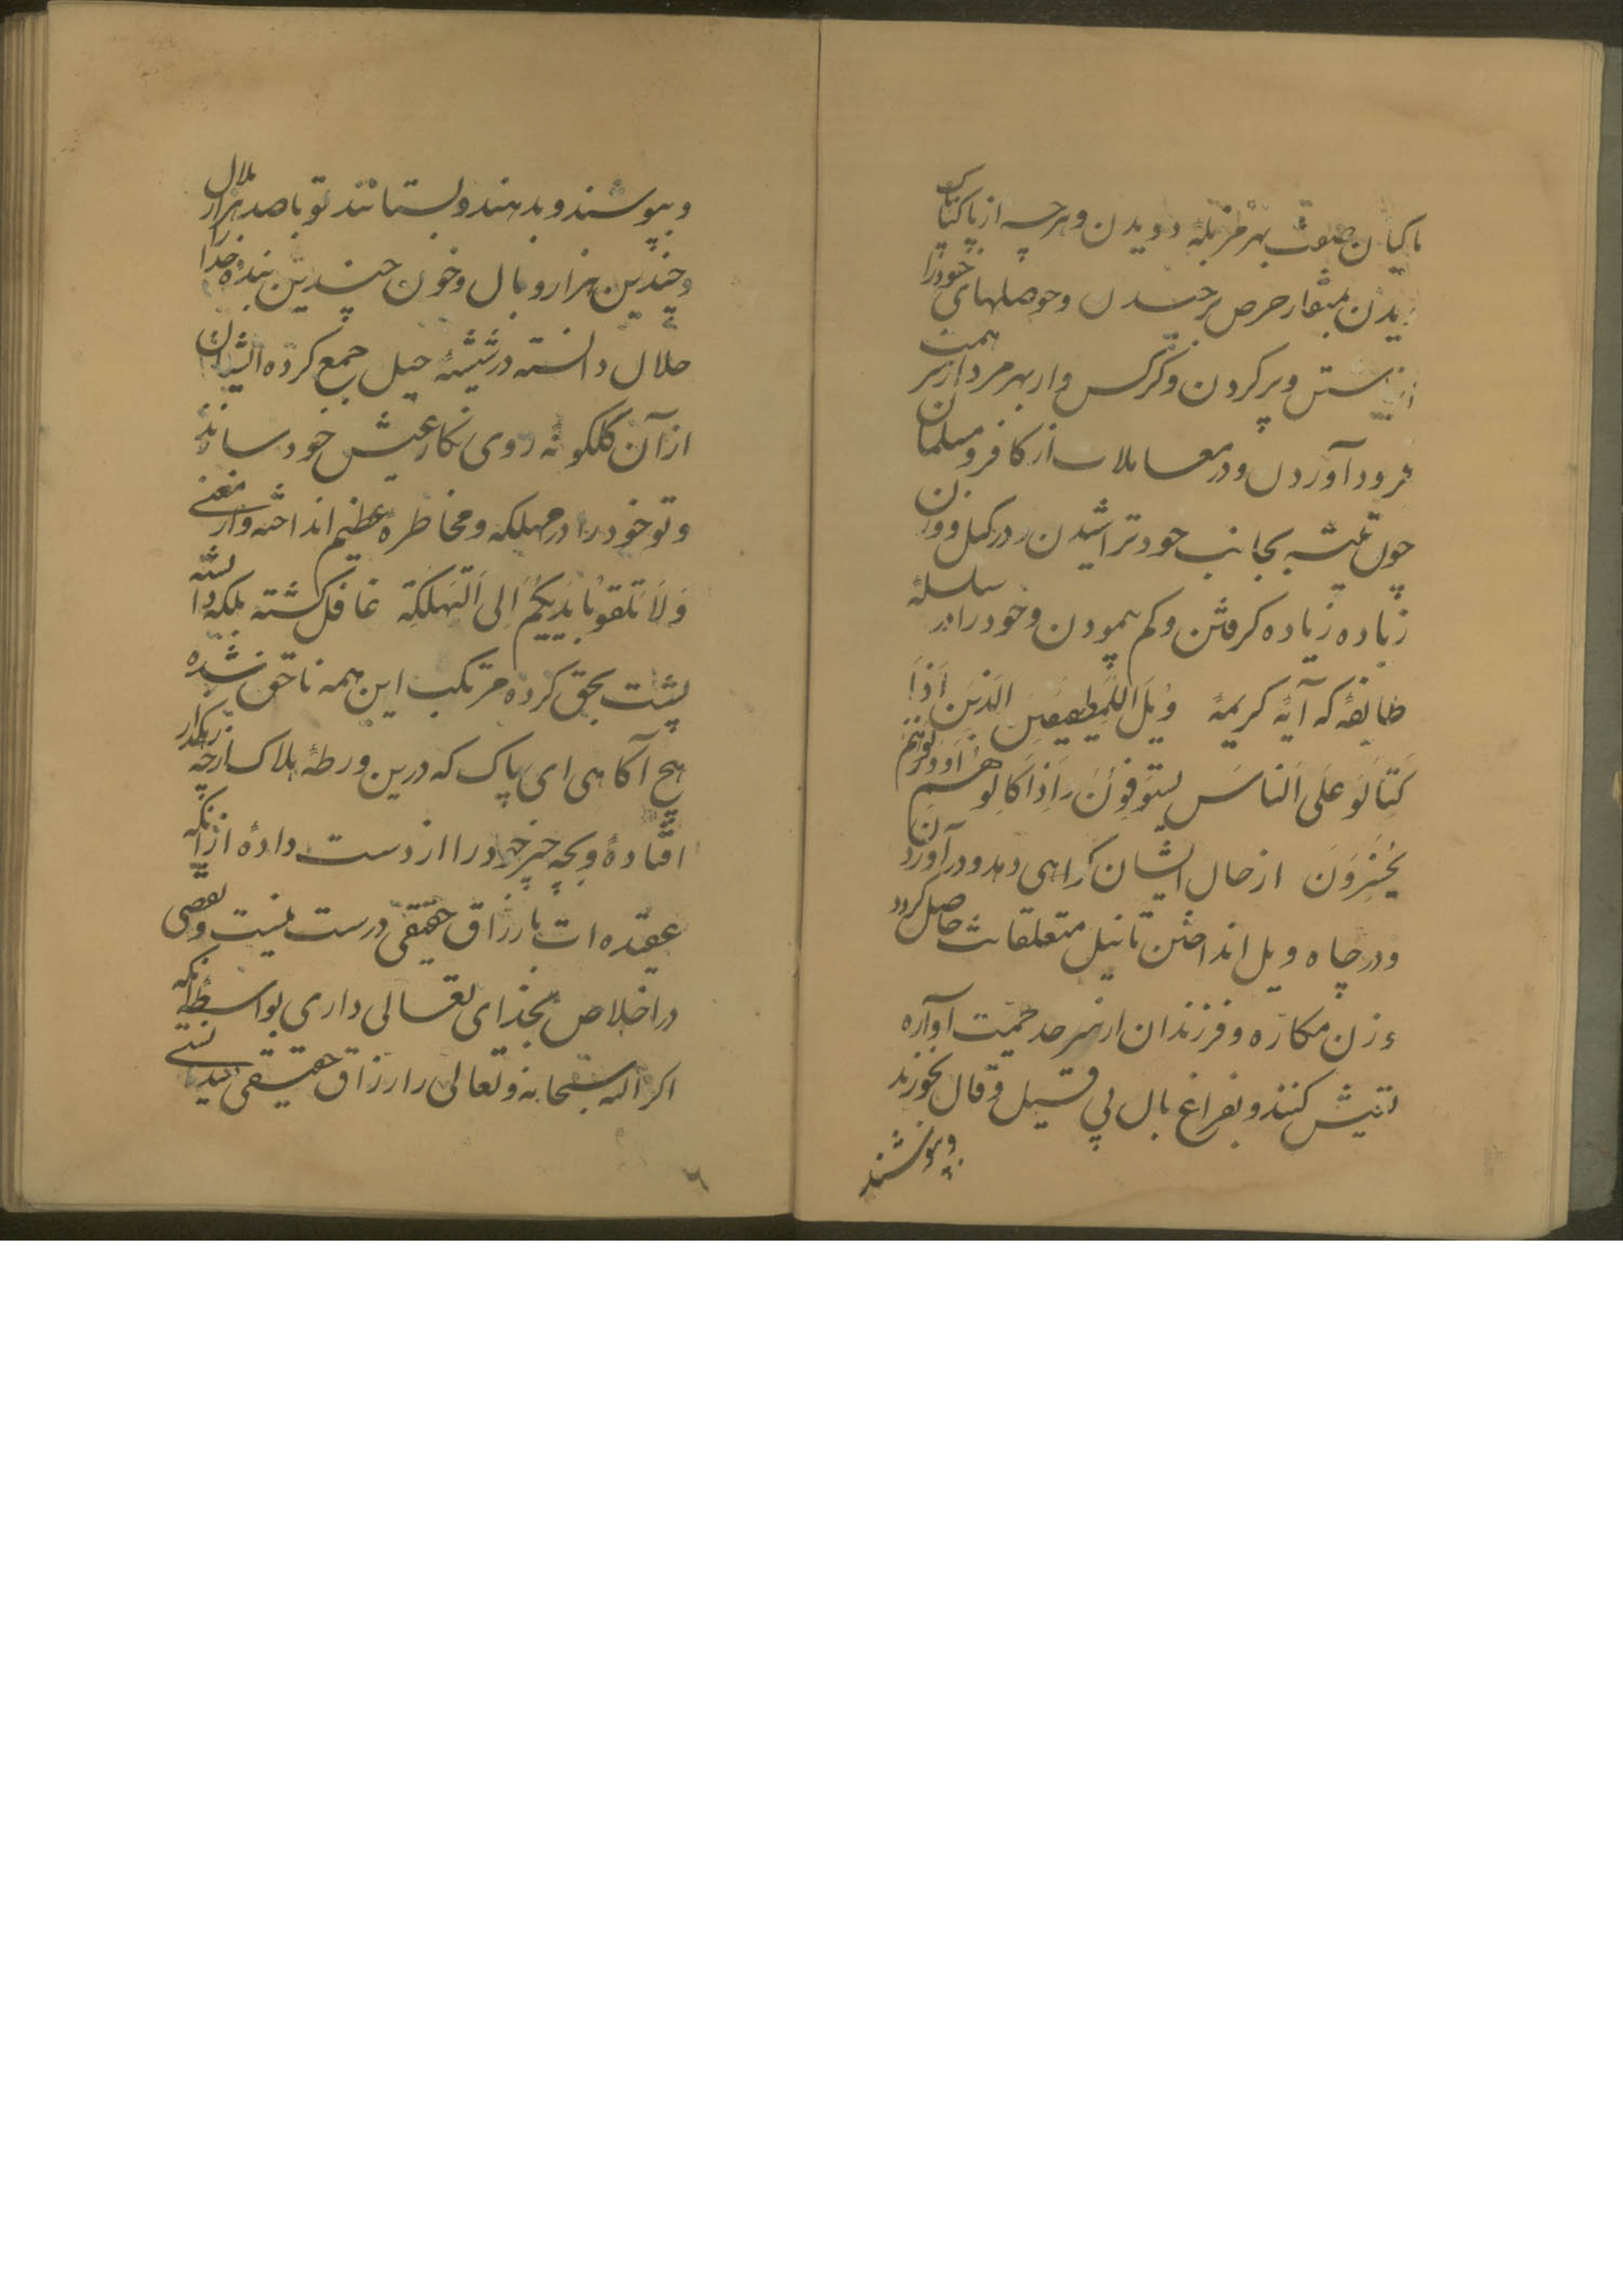 ماکیان صفت بهر مزبلهٔ دویدن و هرچه از پاک ناپاک
دیدن بمنقار حرص برچیدن و حوصلهای خود را
ازین ستن و پر کردن و کرکس وار بهر مردار سر همت
فرود آوردن و در معاملات از کافر و مسلمان
چون تیشه بجانب خود تراشیدن در کیل و وزن
زیاده زیاده کرفتن و کم پیمودن و خود را در سلسلهٔ
طایفهٔ که آیهٔ کریمهٔ وَیل اللمُطففین الذین اذا
کتالو علی الناس یستوفون و اذا کالوهم او وزنوهم
یخسرون از حال ایشان کراهی دهد در آوردن
و در چاه ویل انداختن تا نیل متعلقات حاصل کردد
و زن مکاره و فرزندان از سرحد حمیت آواره
تعیش کنند و بفراغ بال بی قیل و قال بخورند
و بپوشند
و بپوشند و بدهند و بستانند تو با صد هزار ملال
و چندین هزار وبال و خون چندین بندهٔ خدا را
حلال دانسته در شیشهٔ حیل جمع کرده ایشان
از آن کلکونه روی نکار عیش خود سازند
و تو خود را در مهلکه و مخاطرهٔ عظیم انداخته و از معنی
وَلاَ تلقو بایدیکم الی التهلکة غافل کشته بلکه دانسته
پشت بحق کرده مرتکب این همه ناحق شده
هیچ آکاهی ای پاک که درین ورطهٔ هلاک از چه رهکذر
افتادهٔ و بچه چیز خود را از دست دادهٔ از آنکه
عقیده ات با رزاق حقیقی درست نیست و نقصی
در اخلاص بخدای تعالی داری بواسطه آنکه
اکر الله سبحانه و تعالی را رزاق حقیقی